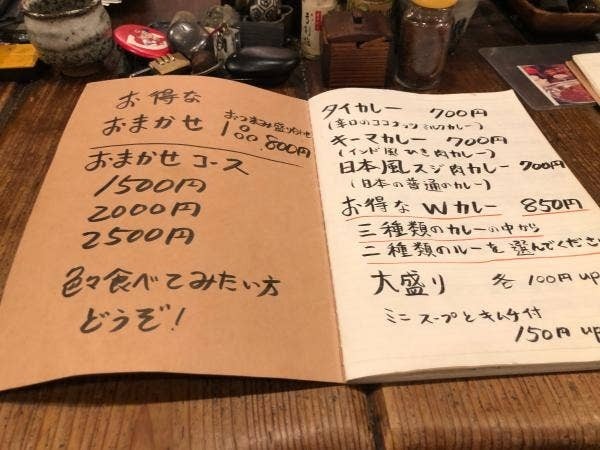 お得な
おまかせ おつまみ盛り合わせ 800円
おまかせ コース
1500円
2000円
2500円
色々食べてみたい方
どうぞ!
タイカレー 700円
(辛口のココナッツミルクカレー)
キーマカレー 700円
(インド風 ひき肉カレー)
日本風スジ肉カレー 700円
(日本の普通のカレー)
お得な Wカレー 850円
三種類のカレーの中から
二種類のルーを選んでくださ
大盛り 各 100円 up
ミニ スープとキムチ付
150円 up